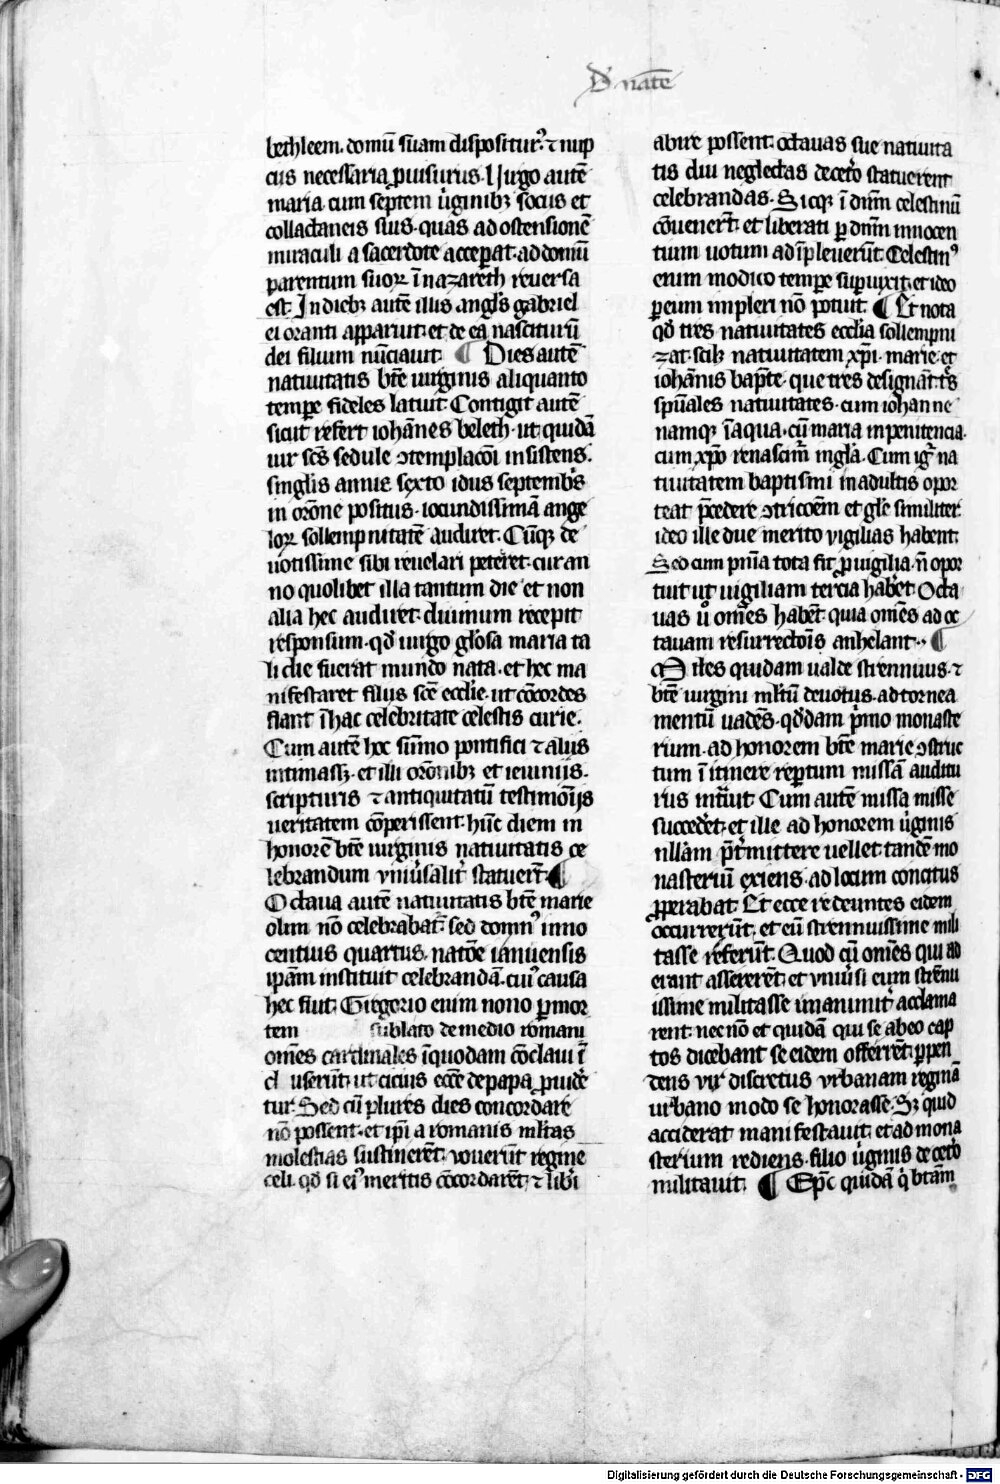 D' natē
bethleem. domū suam dispositur᾽. ⁊ nup
ciis necessaria ꝓuisurus. Uirgo autē
maria cum septem u̓ginibꝫ sociis et
collactaneis suis. quas ad ostensionē
miraculi a sacerdote acceꝑat. ad domū
parentum suoꝝ ī nazareth reuersa
est. In diebꝫ autē illis angl̓s gabriel
ei oranti apparuit. et de ea nasciturū
dei filium nūciauit. ¶ Dies autē
natiuitatis btē uirginis aliquanto
tempe̱ fideles latuit. Contigit autē
sicut refert iohānes beleth. ut quidā
uir scs̄ sedule ꝯtemplacōi insistens.
singl̓is annis sexto idus septemb̓s
in orōne positus. iocundissimā ange
loꝝ sollempnitatē audiret. Cūqꝫ de
uotissime sibi reuelari peteret. cur an
no quolibet illa tantum die et non
alia hec audiret. diuinum recepit
responsum. qd̓ uirgo gl̓osa maria ta
li die fuerat mundo nata. et hec ma
nifestaret filiis scē eccl̓ie. ut cōcordes
fiant ī hac celebritate celestis curie.
Cum autē hoc sūmo pontifici ⁊ aliis
intimassꝫ. et illi orōnibꝫ et ieiuniis.
scripturis ⁊ antiquitatū testimōijs
ueritatem cōperissent. hūc diem in
honorē btē uirginis natiuitatis ce
lebrandum vniu̓salit᷑ statuer̄t. ¶
Octaua autē natiuitatis btē marie
olim nō celebrabat᷑. sed domn᾽ inno
centius quartus. natōe ianuensis
ipām instituit celebrandā. cui᾽ causa
hec fuit. Gregorio enim nono ꝑ mor
tem sublato de medio romani
om̄es cardinales ī quodam cōclaui ī
cl userūt. ut cicius ecc̄e de papa ꝓuide̓
tur. Sed cū plures dies concordare
nō possent. et ip̄i a romanis ml̓tas
molestias sustinerēt. vouerūt regine
celi. qd̓ si ei᾽ meritis cōcordarēt. ⁊ lib̓i
abire possent. octauas sue natiuita
tis diu neglectas decet̓o statuerent
celebrandas. Sicqꝫ ī dn̄m celestinū
cōuener̄t. et liberati ꝑ dn̄m innocen
tium uotum adīpleuerūt. Celestin᾽
enim modico tempe̱ suꝑuixit. et ideo
ꝑ eum impleri nō potuit. ¶ Et nota
qd̓ tres natiuitates eccl̓ia sollempni
zat. scilꝫ natiuitatem xp̄i. marie. et
iohānis bapt̄e. que tres designāt. tr̓s
spūales natiuitates. cum iohanne
namqꝫ ī aqua. cū maria in penitencia.
cum xp̄o renascim᷑ in gl̓a. Cum ig᷑ na
tiuitatem baptismi in adultis opor
teat p̄cedere ꝯtricōem et gl̓e similiter
ideo ille due merito vigilias habent.
Sed cum pn̄ia tota fit ꝓ uigilia. n̄ opor
tuit ut uigiliam tercia hab̓et. Octa
uas u̓o om̄es habēt. quia om̄es ad oc
tauam resurrectōis anhelant. ¶
Miles quidam ualde strennuus. ⁊
btē uirgini ml̓tū deuotus. ad tornea
mentū uadēs. qd̓dam p̓mo monaste
rium. ad honorem btē marie ꝯstruc
tum ī itinere reꝑtum missā auditu
rus int̓uit. Cum autē missa misse
succedet̓. et ille ad honorem u̓ginis
nllām p̄t᷑mittere uellet. tandē mo
nasteriū exiens. ad locum concitus
ꝓperabat. Et ecce redeuntes eidem
occurrerūt. et eū strennuissime mili
tasse referūt. Quod cū om̄es qui ad
erant assererēt. et vniu̓si eum strēnu
issime militasse unanimit᷑ acclama
rent. necnō et quidā qui se ab eo cap
tos dicebant se eidem offerrēt. ꝑpen
dens vir discretus vrbanam reginā
urbano modo se honorasse. Sꝫ quid
acciderat manifestauit. et ad mona
sterium rediens. filio u̓ginis decet̓o
militauit. ¶ Ep̄c quidā q̓ btām
Digitalisierung gefördert durch die Deutsche Forschungsgemeinschaft - DFG